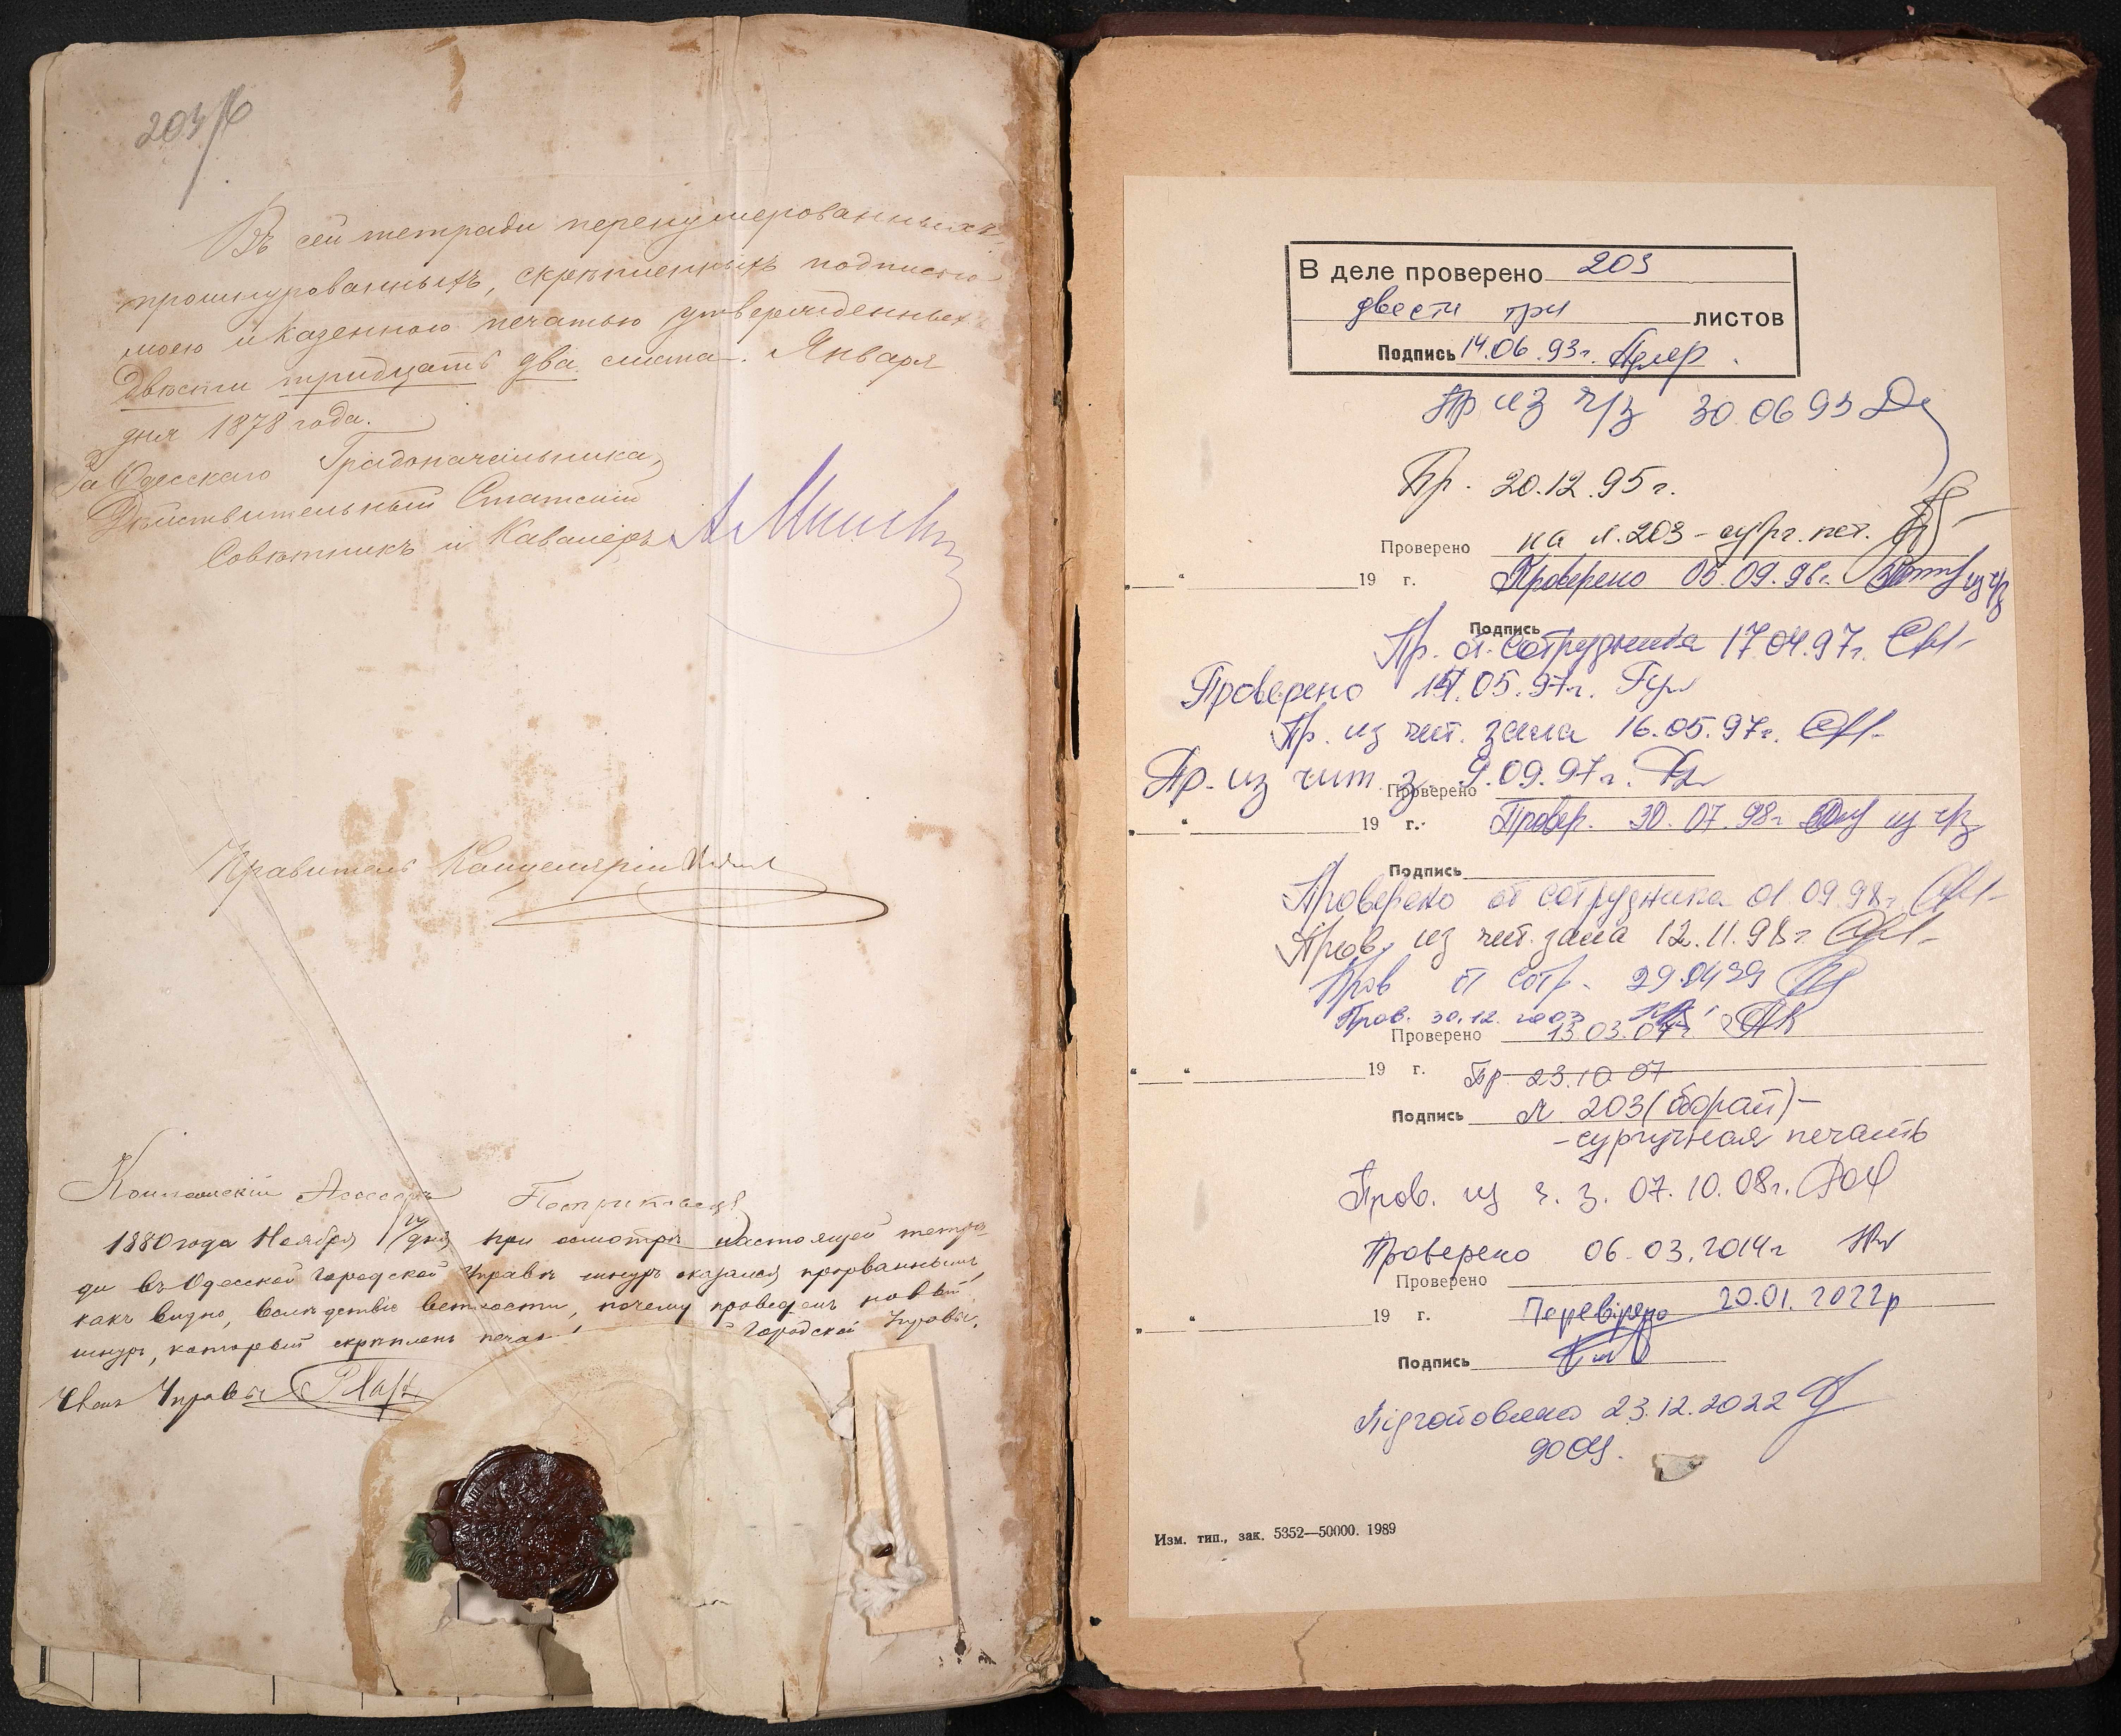 203
Въ сей тетради перенумерованныхъ,
прошнурованныхъ, скрѣпленныхъ подписью
моею и казенною печатью утвержденныхъ
двѣсти тридцать два листа. Января
дня 1878 года.
За Одесскаго Градоначальника,
Дѣйствительный Статскій
Совѣтникъ и Кавалеръ
Правитель Канцеляріи
Коллежскій Ассесоръ
1880 года Ноября дня при осмотрѣ настоящей тетра-
ди въ Одесской Городской Управѣ шнуръ оказался прорваннымъ,
какъ видно, вслѣдствіе ветхости, почему проведенъ новый
шнуръ, который скрѣпленъ печат Городской Управы.
Членъ Управы
В деле проверено 203
двести три листов
Подпись 14.06.93г.
Пр из ч/з 30.06 93
Пр. 20.12.95г.
Проверено на л. 203 - сург. печ.
„ “ 19 г. Проверено 05.09.96г. из ч/з
Подпись
Пр. от сотрудника 17.04.97г.
Проверено 14.05.97г.
Пр. из чит. зала 16.05.97г.
Пр. из чит. з. 9.09.97г.
Проверено
„ “ 19 г. Провер. 30.07.98г. из ч/з
Подпись
Проверено от сотрудника 01.09.98г.
Пров. из чит. зала 12.11.98г.
Пров от сотр. 29.04 99
Пров. 30.12.2003
Проверено 13.03.07г.
„ “ 19 г. Пр 23.10 07
Подпись л 203 (оборот) -
- сургучная печать
Пров. из ч. з. 07.10.08г.
Проверено 06.03.2014г
Проверено
„ “ 19 г. Перевірено 20.01.2022р
Подпись
Підготовлено 23.12.2022
Изм. тип., зак. 5352—50000. 1989